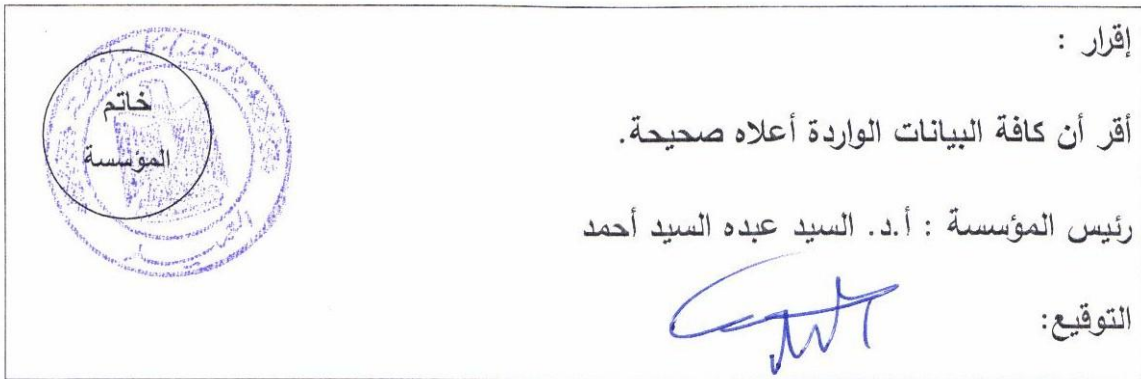 إقرار :
أقر أن كافة البيانات الواردة أعلاه صحيحة.
رئيس المؤسسة : أ.د. السيد عبده السيد أحمد
التوقيع:
خاتم
المؤسسة